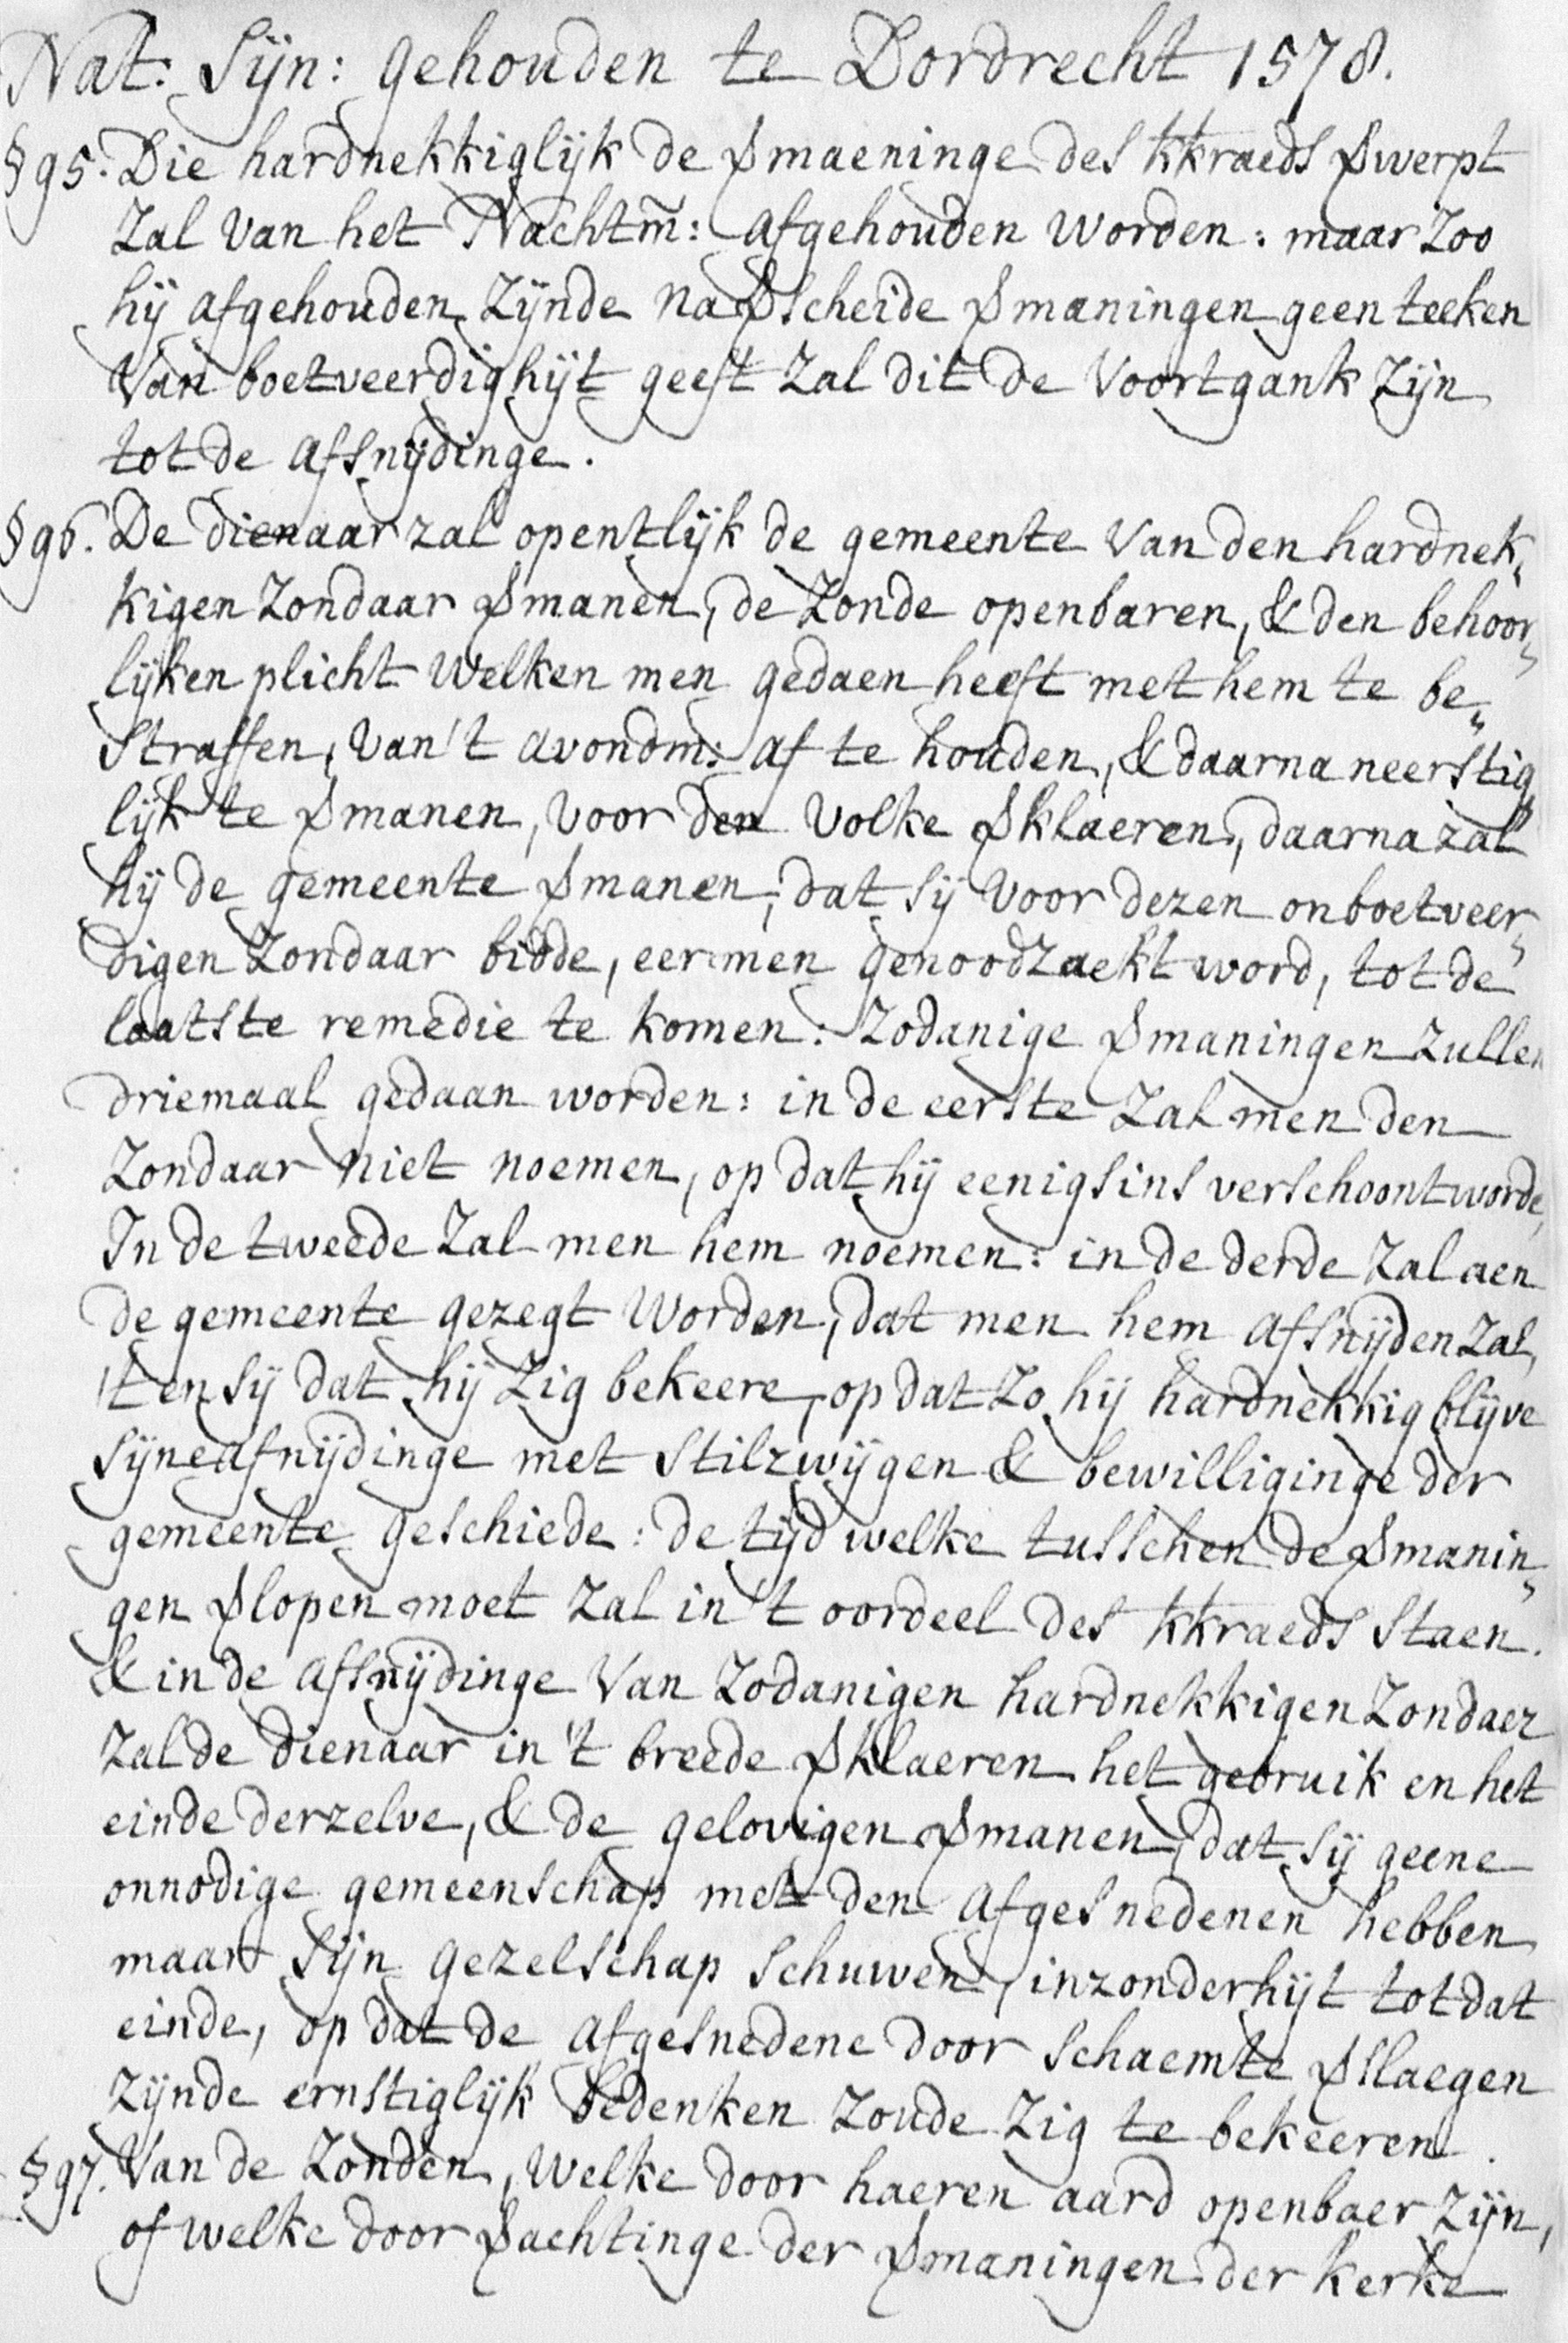 Nat: Sijn: gehouden te Dordrecht 1578.
§ 95. Die hardnekkiglijk de ꝟmaeninge des kkraeds ꝟwerpt
Zal van het Nachtm̃: afgehouden worden: maar Zoo
hij afgehouden Zijnde na ꝟscheide ꝟmaningen geen teeken
Van boetveerdighijt geeft Zal dit de Voortgank Zijn
tot de afsnijdinge.
§ 96. De dienaar zal opentlijk de gemeente Van den hardnek„
kigen Zondaar ꝟmanen, de Zonde openbaren, & den behoor„
lijken plicht Welken men gedaen heeft met hem te be„
straffen, van 't avondm: af te houden, & daarna neerstig
lijk te ꝟmanen, voor den volke ꝟklaeren, daarna zal
hij de gemeente ꝟmanen, dat sij voor dezen onboetveer„
digen Zondaar bidde, eer men genoodzaekt word, tot de
laatste remedie te komen: Zodanige ꝟmaningen Zullen
driemaal gedaan worden: in de eerste Zal men den
Zondaar niet noemen, op dat hij eenigsins verschoont worde,
In de tweede Zal men hem noemen: in de derde Zal aen
de gemeente gezegt Worden, dat men hem afsnijden Zal,
't en sij dat hij Zig bekeere, op dat Zo hij hardnekkig blijve
sijne afnijdinge met stilzwijgen & bewilliginge der
gemeente geschiede: de tijd welke tusschen de ꝟmanin„
gen ꝟlopen moet Zal in 't oordeel des kkraeds staen.
& in de afsnijdinge Van Zodanigen hardnekkigen Zondaer
Zal de dienaar in 't breede ꝟklaeren het gebruik en het
einde derzelve, & de gelovigen ꝟmanen, dat sij geene
onnodige gemeenschap met den afgesnedenen hebben
maar sijn gezelschap schuwen, inzonderhijt tot dat
einde, op dat de afgesnedene door schaemte ꝟslaegen
Zijnde ernstiglijk bedenken Zoude Zig te bekeeren.
§ 97. Van de Zonden, welke door haeren aard openbaer Zijn,
of welke door ꝟachtinge der ꝟmaningen der kerke